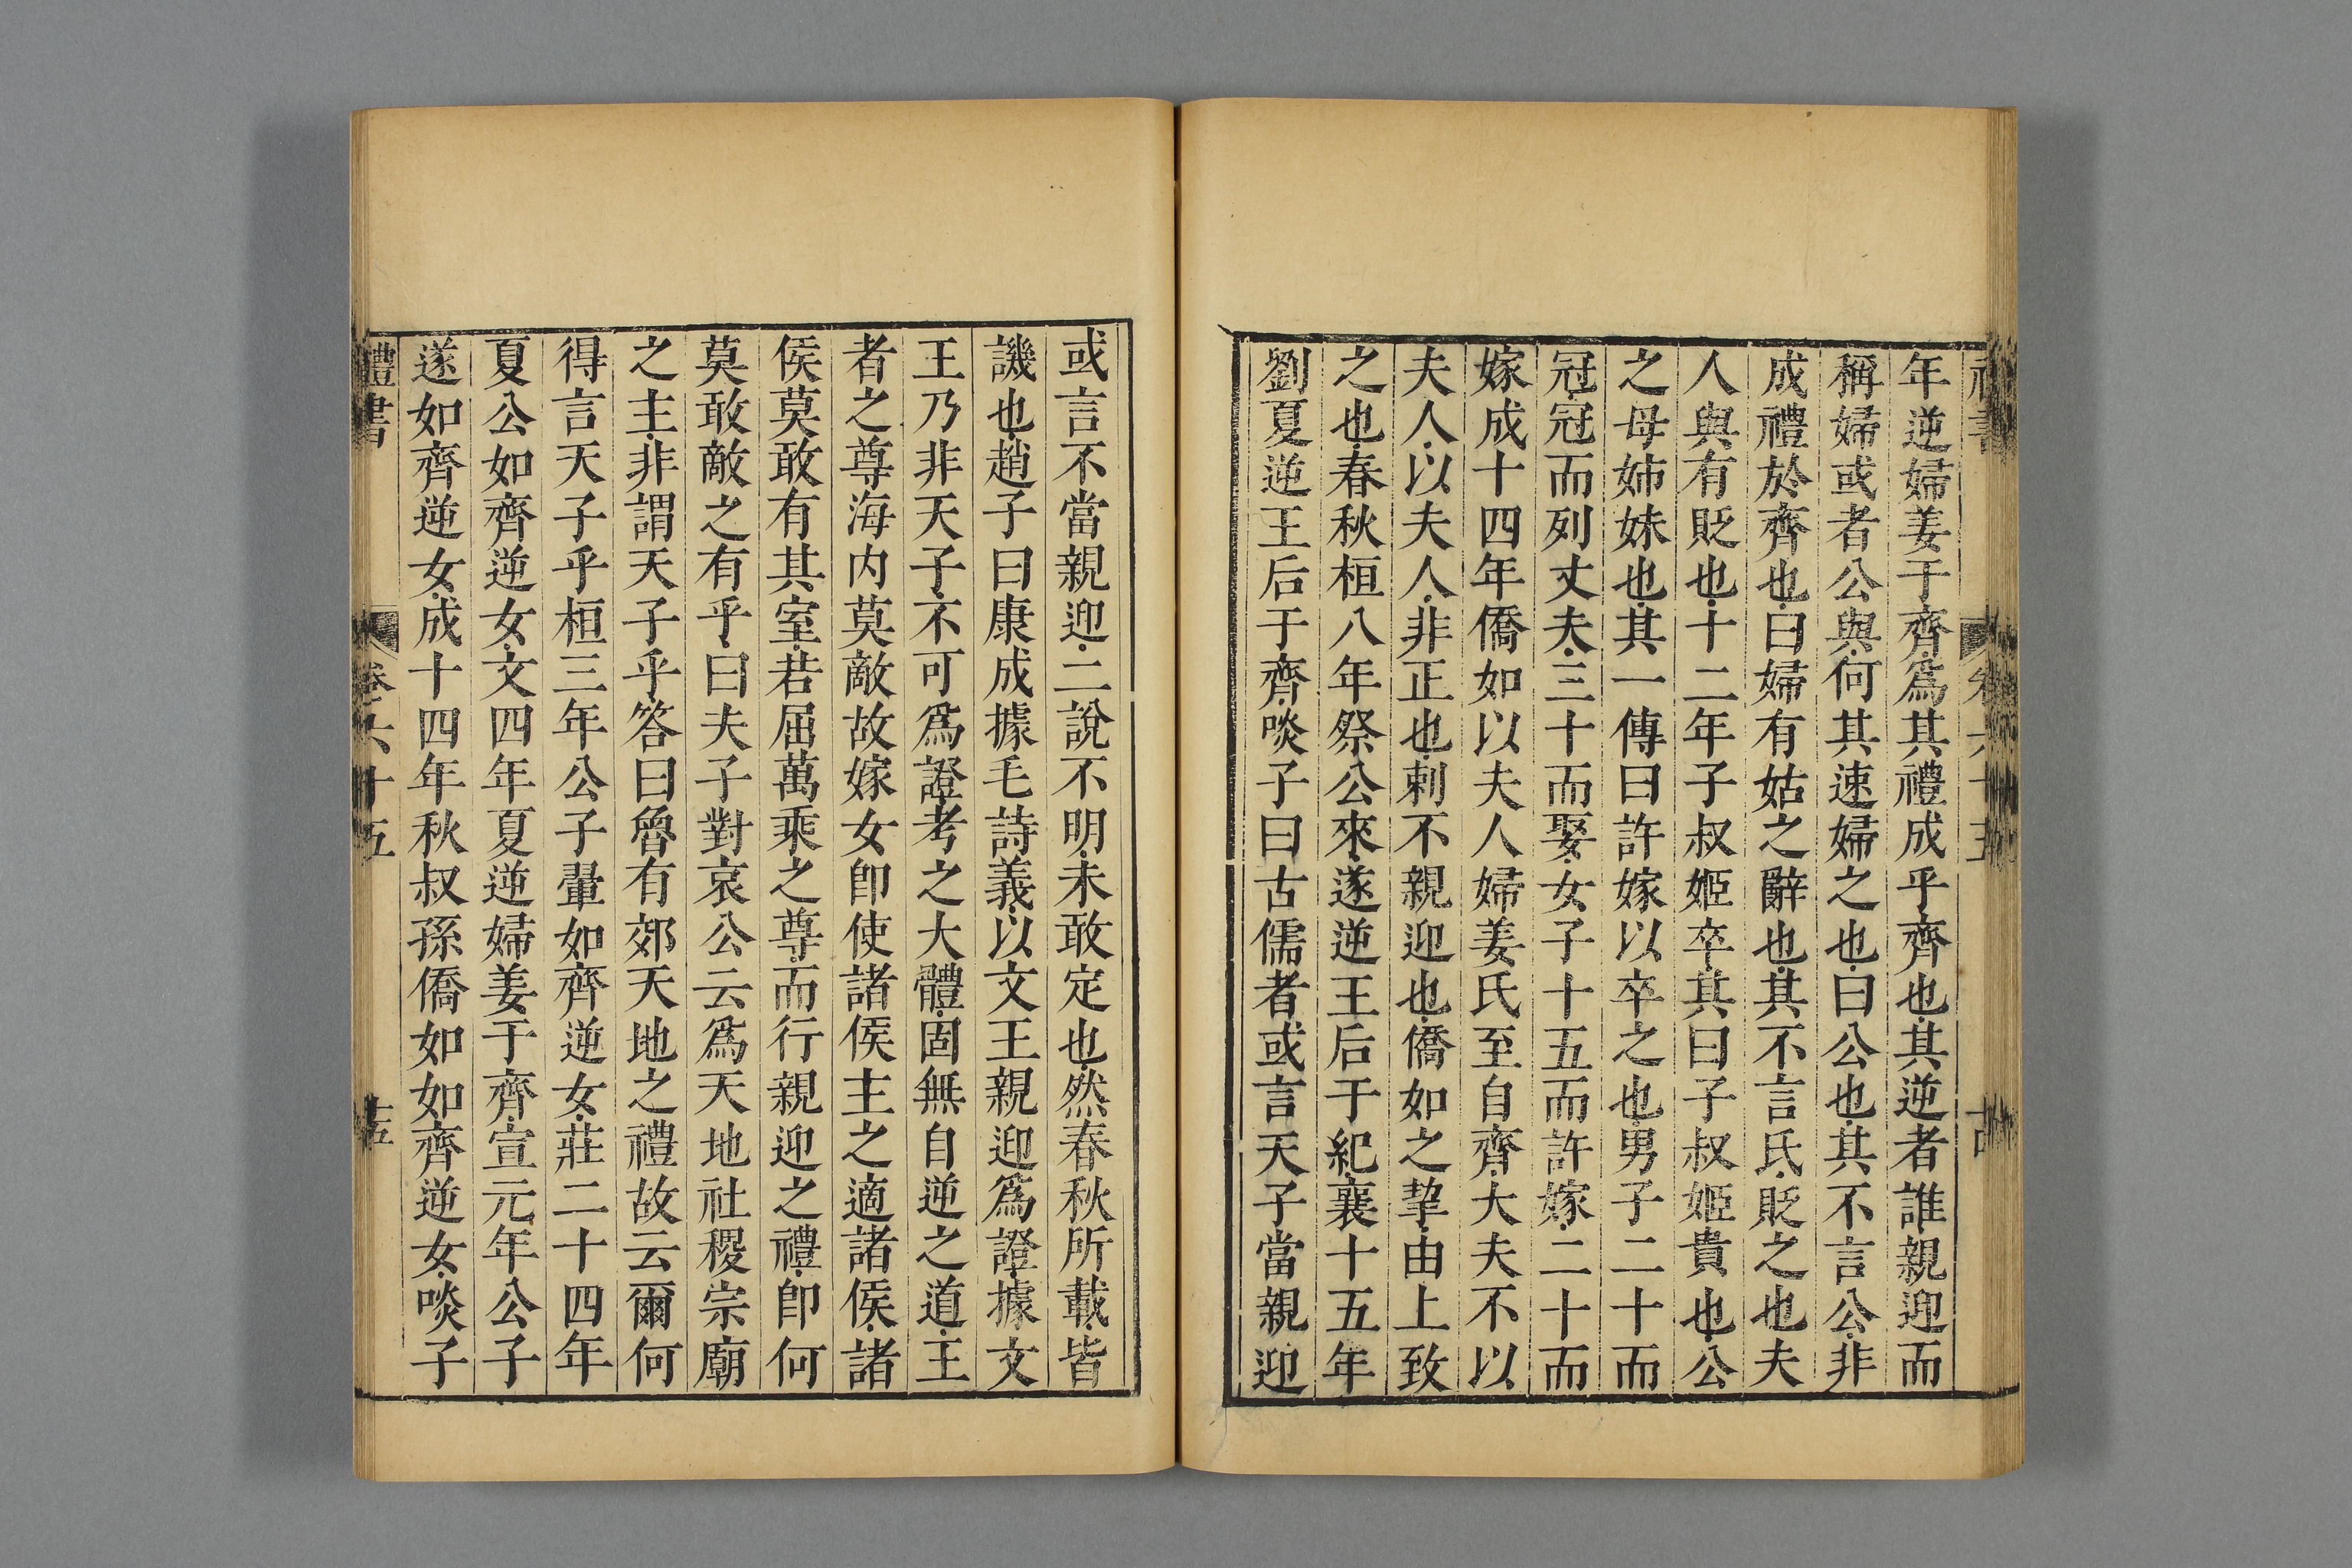 年逆婦姜于齊爲其禮成乎齊也其逆者誰親迎而
稱婦或者公與何其速婦之也曰公也其不言公非
成禮於齊也曰婦有姑之辭也其不言氏貶之也夫
人與有貶也十二年子叔姬卒其曰子叔姬貴也公
之母姊妹也其一傳曰許嫁以卒之也男子二十而
冠冠而列丈夫三十而娶女子十五而許嫁二十而
嫁成十四年僑如以夫人婦姜氏至自齊大夫不以
夫人以夫人非正也刺不親迎也僑如之挈由上致
之也春秋桓八年祭公來遂逆王后于紀襄十五年
劉夏逆王后于齊啖子曰古儒者或言天子當親迎
或言不當親迎二說不明未敢定也然春秋所載皆
譏也趙子曰康成據毛詩義以文王親迎爲證據文
王乃非天子不可爲證考之大體固無自逆之道王
者之尊海内莫敵故嫁女卽使諸侯主之適諸侯諸
侯莫敢有其室若屈萬乘之尊而行親迎之禮卽何
莫敢敵之有乎曰夫子對哀公云爲天地社稷宗廟
之主非謂天子乎答曰魯有郊天地之禮故云爾何
得言天子乎桓三年公子翬如齊逆女莊二十四年
夏公如齊逆女文四年夏逆婦姜于齊宣元年公子
遂如齊逆女成十四年秋叔孫僑如如齊逆女啖子
禮書 卷六十五 十五